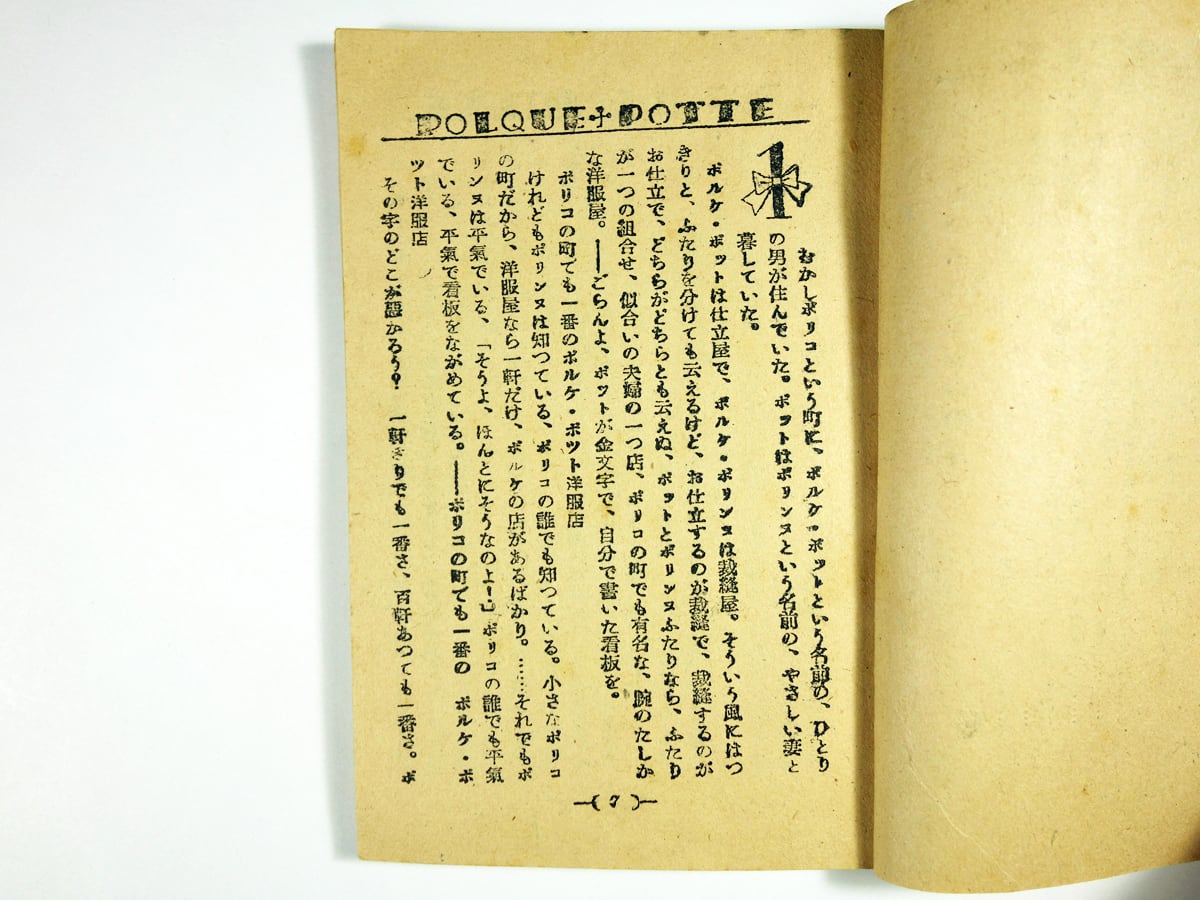 POLQUE・POTTE
1
むかしポリコという町に、ポルケ・ポットという名前の、ひとり
の男が住んでいた。ポットはポリンヌという名前の、やさしい妻と
暮していた。
ポルケ・ポットは仕立屋で、ポルケ・ポリンヌは裁縫屋。そういう風にはつ
きりと、ふたりを分けても云えるけど、お仕立するのが裁縫で、裁縫するのが
お仕立で、どちらがどちらとも云えぬ、ポットとポリンヌふたりなら、ふたり
が一つの組合せ、似合いの夫婦の一つ店、ポリコの町でも有名な、腕のたしか
な洋服屋。――ごらんよ、ポットが金文字で、自分で書いた看板を。
ポリコの町でも一番のポルケ・ポツト洋服店
けれどもポリンヌは知つている、ポリコの誰でも知つている。小さなポリコ
の町だから、洋服屋なら一軒だけ、ポルケの店があるばかり。……それでもポ
リンヌは平氣でいる、「そうよ、ほんとにそうなのよ!」ポリコの誰でも平氣
でいる、平氣で看板をながめている。――ポリコの町でも一番の ポルケ・ポ
ツト洋服店
その字のどこが惡かろう? 一軒きりでも一番さ、百軒あつても一番さ。ポ
7